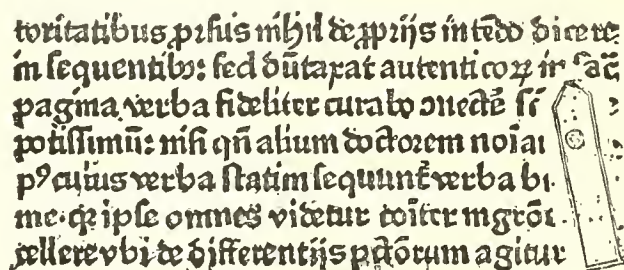 toritatibus ꝓrsus nihil de ꝓprijs intēdo dicere
in sequentibꝫ: sed dūtaxat autenticoꝝ in sac̄
pagina verba fideliter curabo ↄnectē
potissimū: nisi qn̄ alium doctorem noīa
pꝰ cuius verba statim sequunt᷑ verba b
me. qꝛ ipse omnes videtur cōiter
cellere vbi de differentijs pctōrum agitur